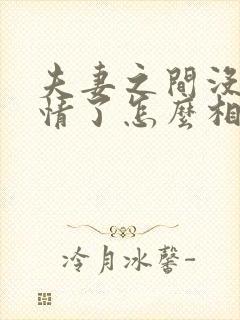 夫妻之間沒
情了怎麼相
冷月冰馨-